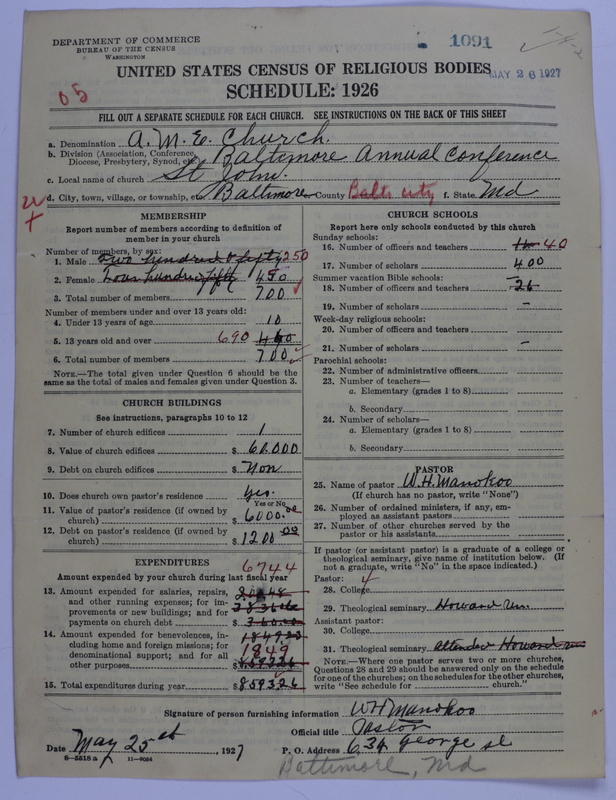 DEPARTMENT OF COMMERCE
BUREAU OF THE CENSUS
WASHINGTON
1091
MAY 26 1927
UNITED STATES CENSUS OF RELIGIOUS BODIES
SCHEDULE: 1926
05
FILL OUT A SEPARATE SCHEDULE FOR EACH CHURCH. SEE INSTRUCTIONS ON THE BACK OF THIS SHEET
a. Denomination A. M. E. Church.
b. Division (Association, Conference, Diocese, Presbytery, Synod, etc.) Baltimore Annual Conference
c. Local name of church St John.
d. City, town, village, or township, etc. Baltimore County Balto city f. State Md
MEMBERSHIP
Report number of members according to definition of
member in your church
Number of members, by sex:
1. Male Two hundred & fifty 250
2. Female Four hundred fifty 450
3. Total number of members 700
Number of members under and over 13 years old:
4. Under 13 years of age 10
5. 13 years old and over 690
6. Total number of members 700
NOTE.—The total given under Question 6 should be the
same as the total of males and females given under Question 3.
CHURCH BUILDINGS
See instructions, paragraphs 10 to 12
7. Number of church edifices 1
8. Value of church edifices $ 60.000
9. Debt on church edifices $ Non
10. Does church own pastor's residence yes.
Yes or No
11. Value of pastor's residence (if owned by
church) $ 6000.00
12. Debt on pastor's residence (if owned by
church) $ 1200.00
EXPENDITURES
Amount expended by your church during last fiscal year
6744
13. Amount expended for salaries, repairs,
and other running expenses; for im-
provements or new buildings; and for
payments on church debt $ 360.00
14. Amount expended for benevolences, in-
cluding home and foreign missions; for
denominational support; and for all
other purposes $
1849
15. Total expenditures during year $ 8593.26
CHURCH SCHOOLS
Report here only schools conducted by this church
Sunday schools:
16. Number of officers and teachers 40
17. Number of scholars 400
Summer vacation Bible schools:
18. Number of officers and teachers 26
19. Number of scholars -
Week-day religious schools:
20. Number of officers and teachers
21. Number of scholars -
Parochial schools:
22. Number of administrative officers
23. Number of teachers—
a. Elementary (grades 1 to 8)
b. Secondary
24. Number of scholars—
a. Elementary (grades 1 to 8)
b. Secondary
PASTOR
25. Name of pastor W. H. Manokoo
(If church has no pastor, write "None")
26. Number of ordained ministers, if any, em-
ployed as assistant pastors
27. Number of other churches served by the
pastor or his assistants
If pastor (or assistant pastor) is a graduate of a college or
theological seminary, give name of institution below. (If
not a graduate, write "No" in the space indicated.)
Pastor: 4
28. College
29. Theological seminary Howard Un.
Assistant pastor:
30. College
31. Theological seminary attended Howard un
NOTE.—Where one pastor serves two or more churches,
Questions 28 and 29 should be answered only on the schedule
for one of the churches; on the schedules for the other churches,
write "See schedule for church."
Signature of person furnishing information W H Manokoo
Official title Pastor
Date May 25th, 1927 P. O. Address 634 George st
8—5518 a 11—9084
Baltimore, Md